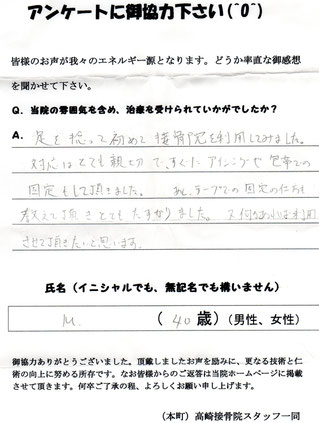 アンケートに御協力下さい(^0^)
皆様のお声が我々のエネルギー源となります。どうか率直な御感想
を聞かせて下さい。
Q. 当院の雰囲気を含め、治療を受けられていかがでしたか?
A. 足を捻って初めて接骨院を利用してみました。
対応はとても親切で、すぐにアイシングや包帯での
固定もして頂きました。 テープでの固定の仕方も
教えて頂きとてもたすかりました。又何かあれば利用
させて頂きたいと思います。
氏名(イニシャルでも、無記名でも構いません)
M. (40歳)(男性、女性)
御協力ありがとうございました。頂戴しましたお声を励みに、更なる技術と仁
術の向上に努める所存です。なお皆様からのご返答は当院ホームページに掲載
させて頂きます。何卒ご了承の程、よろしくお願い申し上げます。
(本町)高崎接骨院スタッフ一同